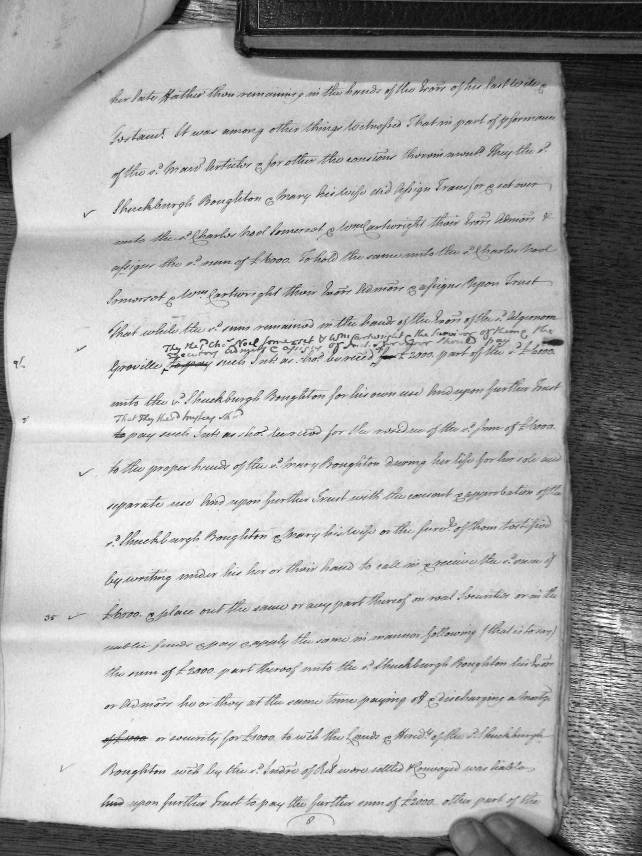 her late Father then remaining in the hands of the Exors of his last Will &
Testamt. It was among other things Witnessed That in part of pformance
of the sd. Marre Articles & for other the consions therein mentd. They the sd.
Shuckburgh Boughton & Mary his Wife did Assign Transfer & set over
unto the sd. Charles Noel Somerset & Wm. Cartwright their Exors Admors &
assigns the sd. sum of £6000. To hold the same unto the sd. Charles Noel
Somerset & Wm. Cartwright their Exors Admors & assigns Upon Trust
That while the sd. sum remained in the hands of the Exors of the sd. Algernon
They the sd. Chs. Noel Somerset & Wm. Cartwright & the Survivor of them & the
Executors Admors & assigns of such Survivor should pay
Greville to pay such Intt. as shod. be reced for £2000. part of the sd. £6000.
unto the sd. Shuckburgh Boughton for his own use And upon further Trust
That They the sd. Trustees shod.
to pay such Intt. as shod. be reced for the residue of the sd. sum of £6000.
to the proper hands of the sd. Mary Boughton during her life for her sole and
separate use And upon further Trust with the consent & approbation of the
sd. Shuckburgh Boughton & Mary his Wife or the survr. of them testified
by writing under his her or their hand to call in & receive the sd. sum of
35 £6000. & place out the same or any part thereof on real Securities or in the
public funds & pay & apply the same in manner following (that is to say)
the sum of £2000 part thereof unto the sd. Shuckburgh Boughton his Exors
or Admors he or they at the same time paying off & discharging a Mortge
of £1000 or security for £1000. to wch the Lands & Heredts. of the sd. Shuckburgh
Boughton wch by the sd. Indre of Rele were settled & Conveyed was liable
And upon further Trust to pay the further sum of £2000. other part of the
8